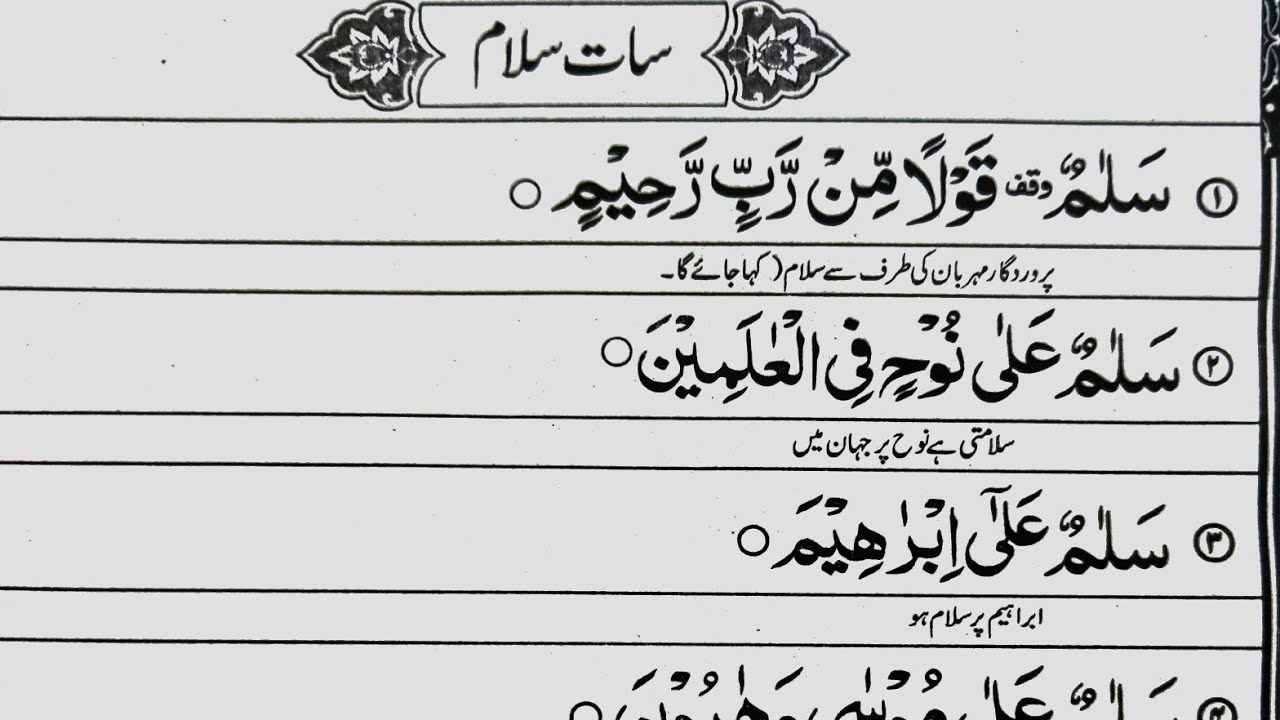 سات سلام
۱ سَلٰمٌ وقف قَوْلًا مِّنْ رَّبٍّ رَّحِیْمٍ ○
پروردگار مہربان کی طرف سے سلام ( کہا جائے گا۔
۲ سَلٰمٌ عَلٰی نُوْحٍ فِی الْعٰلَمِیْنَ ○
سلامتی ہے نوح پر جہان میں
۳ سَلٰمٌ عَلٰۤی اِبْرٰهِیْمَ ○
ابراہیم پر سلام ہو
۴ سَلٰمٌ عَلٰی مُوْسٰی وَهٰرُوْنَ ○